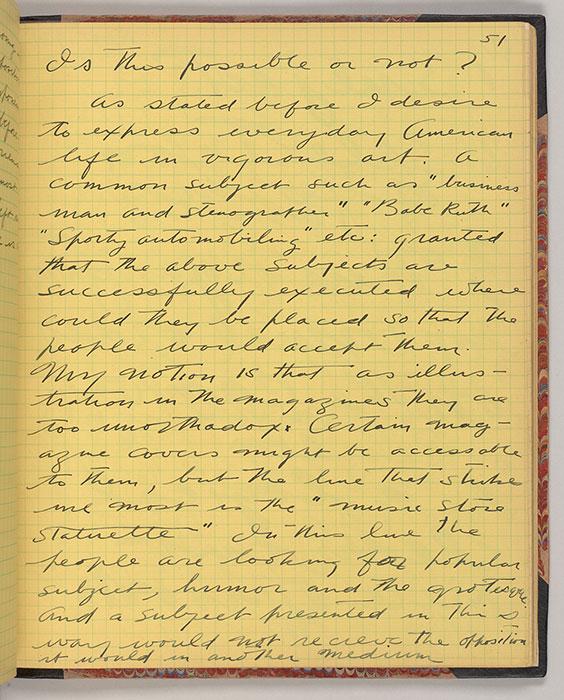 51
Is this possible or not?
As stated before I desire
to express everyday American
life in vigorous art. A
common subject such as "business
man and stenographer" "Babe Ruth"
"Sporty automobiling" etc: granted
that the above subjects are
successfully executed where
could they be placed so that the
people would accept them.
My notion is that as illus-
tration in the magazines they are
too unorthadox. Certain mag-
azine covers might be accessable
to them, but the line that strikes
me most is the "music store
statuette" In this line the
people are looking for popular
subject, humor and the grotesque.
And a subject presented in this
way would not recieve the opposition
it would in another medium